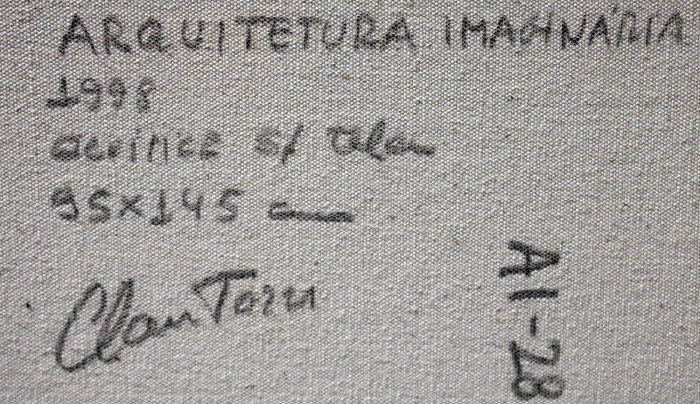 ARQUITETURA IMAGINÁRIA
1998
acrílica s/ tela
95x145 cm
AI-28